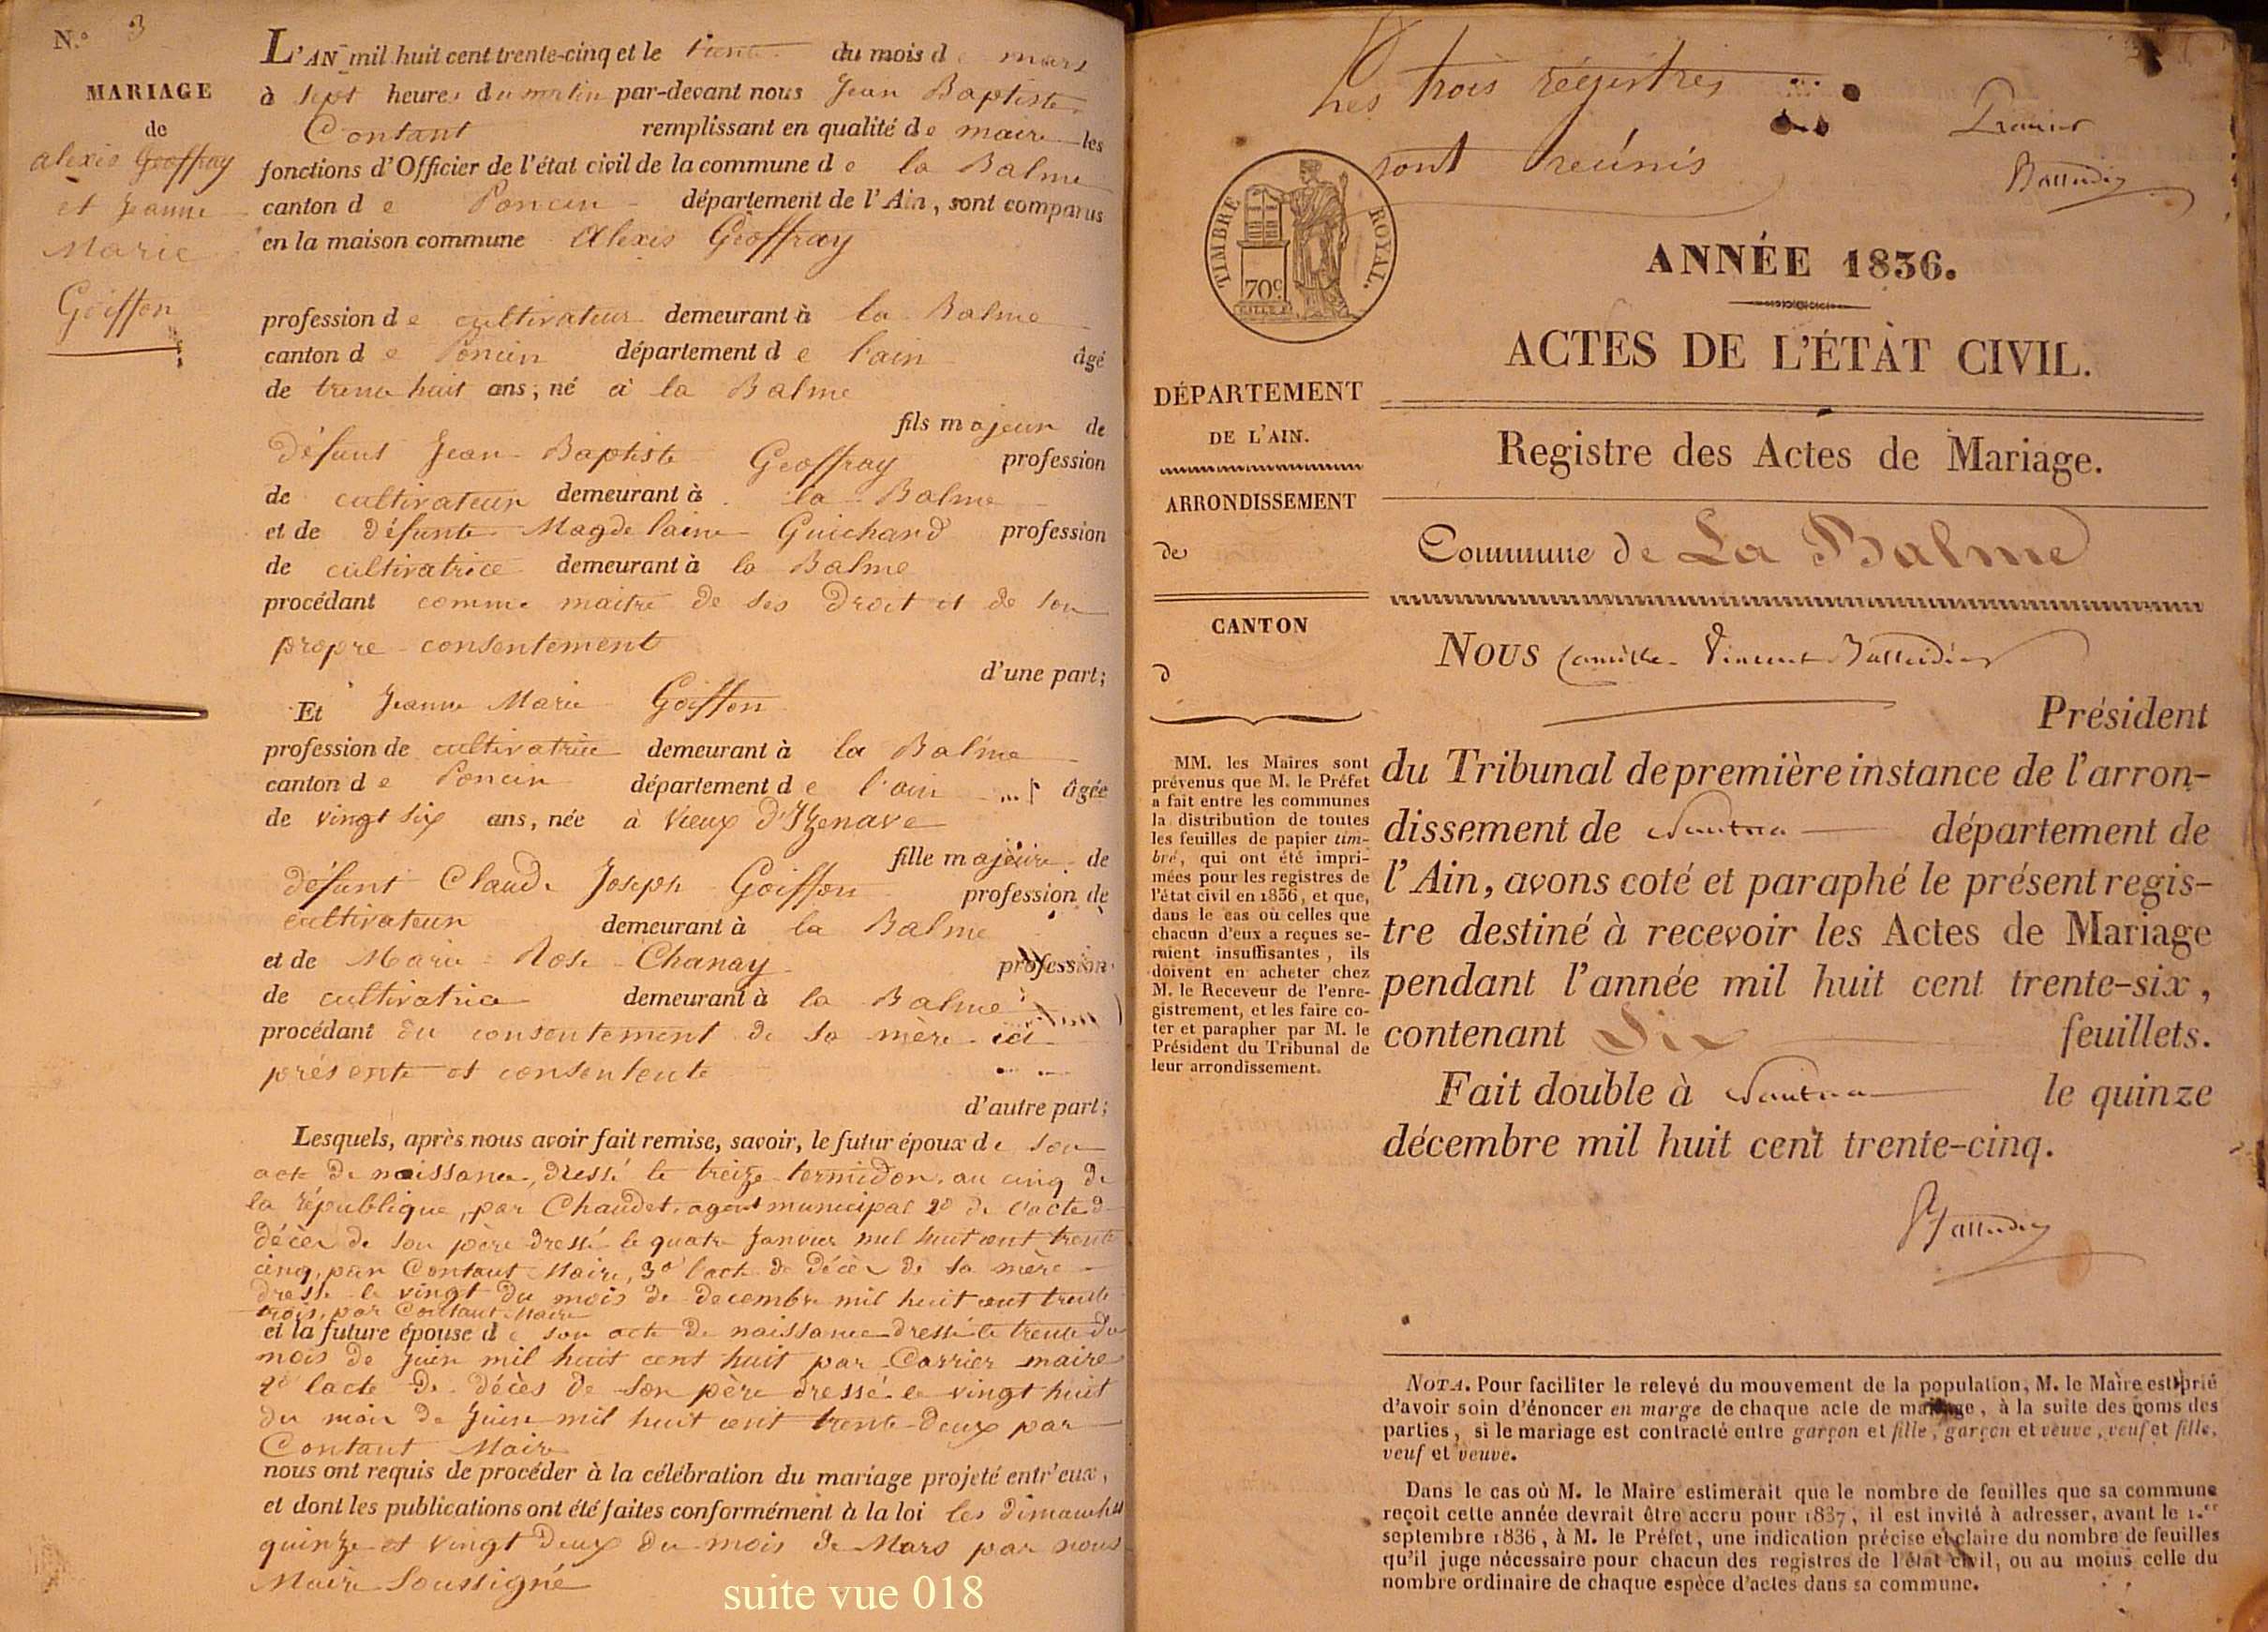 N.° 3
MARIAGE
de
alexis Geoffray
et Jeanne
Marie
Goiffon
L'AN mil huit cent trente-cinq et le trente du mois de mars
à sept heures du matin par-devant nous Jean Baptiste
Contant remplissant en qualité de maire les
fonctions d'Officier de l'état civil de la commune de la Balme
canton de Poncin département de l'Ain, sont comparus
en la maison commune Alexis Geoffray
profession de cultivateur demeurant à la Balme
canton de Poncin département de l'ain âgé
de trente huit ans, né à la Balme
fils majeur de
défunt Jean Baptiste Geoffray profession
de cultivateur demeurant à la Balme
et de défunte Magdelaine Guichard profession
de cultivatrice demeurant à la Balme
procédant comme maitre de ses droit et de son
propre consentement
d'une part;
Et Jeanne Marie Goiffon
profession de cultivatrice demeurant à la Balme
canton de Poncin département de l'ain âgée
de vingt six ans, née à Vieux d'Izenave
fille majeure de
défunt Claude Joseph Goiffon profession de
cultivateur demeurant à la Balme
et de Marie Rose Chanay profession
de cultivatrice demeurant à la Balme
procédant du consentement de sa mère ici
présente et consentente
d'autre part;
Lesquels, après nous avoir fait remise, savoir, le futur époux de son
acte de naissance, dressé le treize termidon, au cinq de
la république, par Chaudet, agent municipal 2° de l'acte d
décès de son père dressé le quatre Janvier mil huit cent trente
cinq, par Contant Maire, 3° l'acte de décès de sa mère
dressé le vingt du mois de decembre mil huit cent trente
trois, par Contant Maire
et la future épouse de son acte de naissance dressé le trente du
mois de Juin mil huit cent huit par Carrier maire
2° lacte de décès de son père dressé le vingt huit
du mois de Juin mil huit cent trente deux par
Contant Maire
nous ont requis de procéder à la célébration du mariage projeté entr'eux,
et dont les publications ont été faites conformément à la loi les dimanches
quinze et vingt deux du mois de Mars par nous
Maire Soussigné
suite vue 018
Les trois régistres
sont reúnis
TIMBRE ROYAL.
70c
ANNÉE 1836.
ACTES DE L'ÉTAT CIVIL.
Registre des Actes de Mariage.
Commune de La Balme
DÉPARTEMENT
DE L'AIN.
ARRONDISSEMENT
de
CANTON
d
MM. les Maires sont
prévenus que M. le Préfet
a fait entre les communes
la distribution de toutes
les feuilles de papier tim-
bré, qui ont été impri-
mées pour les registres de
l'état civil en 1836, et que,
dans le cas où celles que
chacun d'eux a reçues se-
raient insuffisantes, ils
doivent en acheter chez
M. le Receveur de l'enre-
gistrement, et les faire co-
ter et parapher par M. le
Président du Tribunal de
leur arrondissement.
NOUS Camille Vincent
Président
du Tribunal de première instance de l'arron-
dissement de Nantua département de
l'Ain, avons coté et paraphé le présent regis-
tre destiné à recevoir les Actes de Mariage
pendant l'année mil huit cent trente-six,
contenant Six feuillets.
Fait double à Nantua le quinze
décembre mil huit cent trente-cinq.
NOTA. Pour faciliter le relevé du mouvement de la population, M. le Maire est prié
d'avoir soin d'énoncer en marge de chaque acte de mariage, à la suite des noms des
parties, si le mariage est contracté entre garçon et fille, garçon et veuve, veuf et fille,
veuf et veuve.
Dans le cas où M. le Maire estimerait que le nombre de feuilles que sa commune
reçoit cette année devrait être accru pour 1837, il est invité à adresser, avant le 1.er
septembre 1836, à M. le Préfet, une indication précise et claire du nombre de feuilles
qu'il juge nécessaire pour chacun des registres de l'état civil, ou au moins celle du
nombre ordinaire de chaque espèce d'actes dans sa commune.